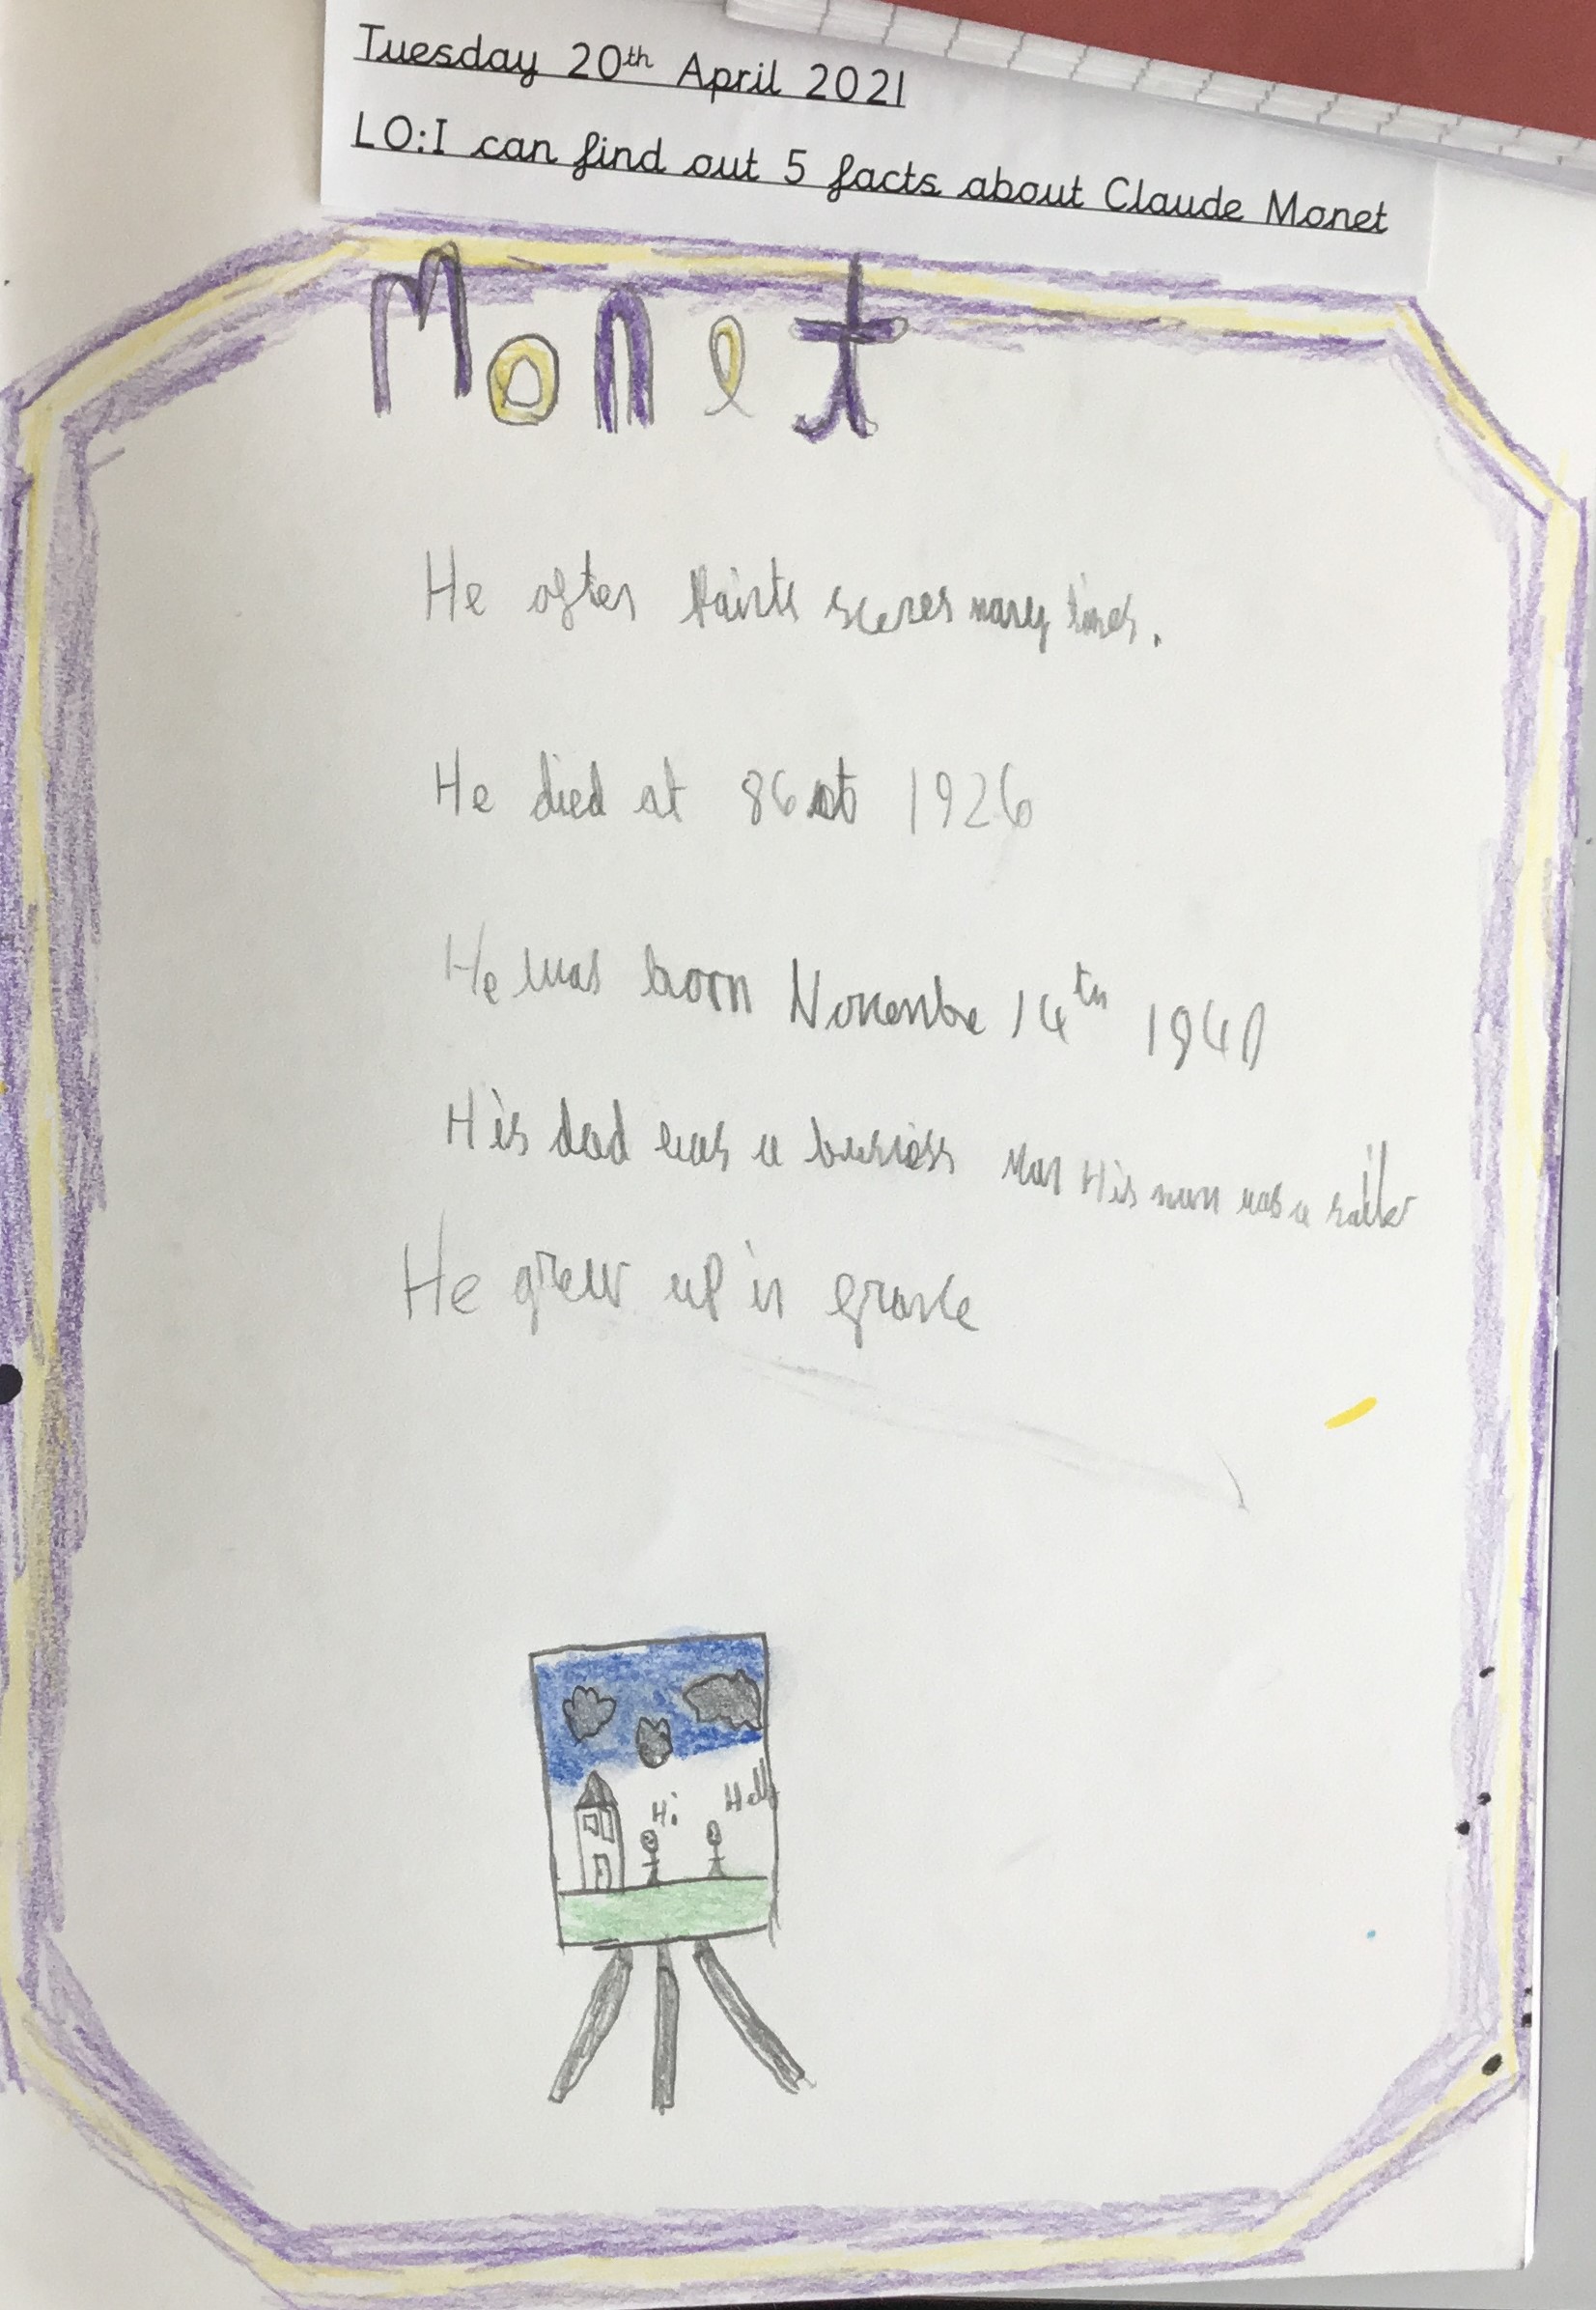 Tuesday 20th April 2021
LO:I can find out 5 facts about Claude Monet
Monet
He often paints scenes many times.
He died at 86 at 1926
He was born Novembe 14th 1940
His dad was a busniess man His mum was a
He grew up in france
Hi Hello